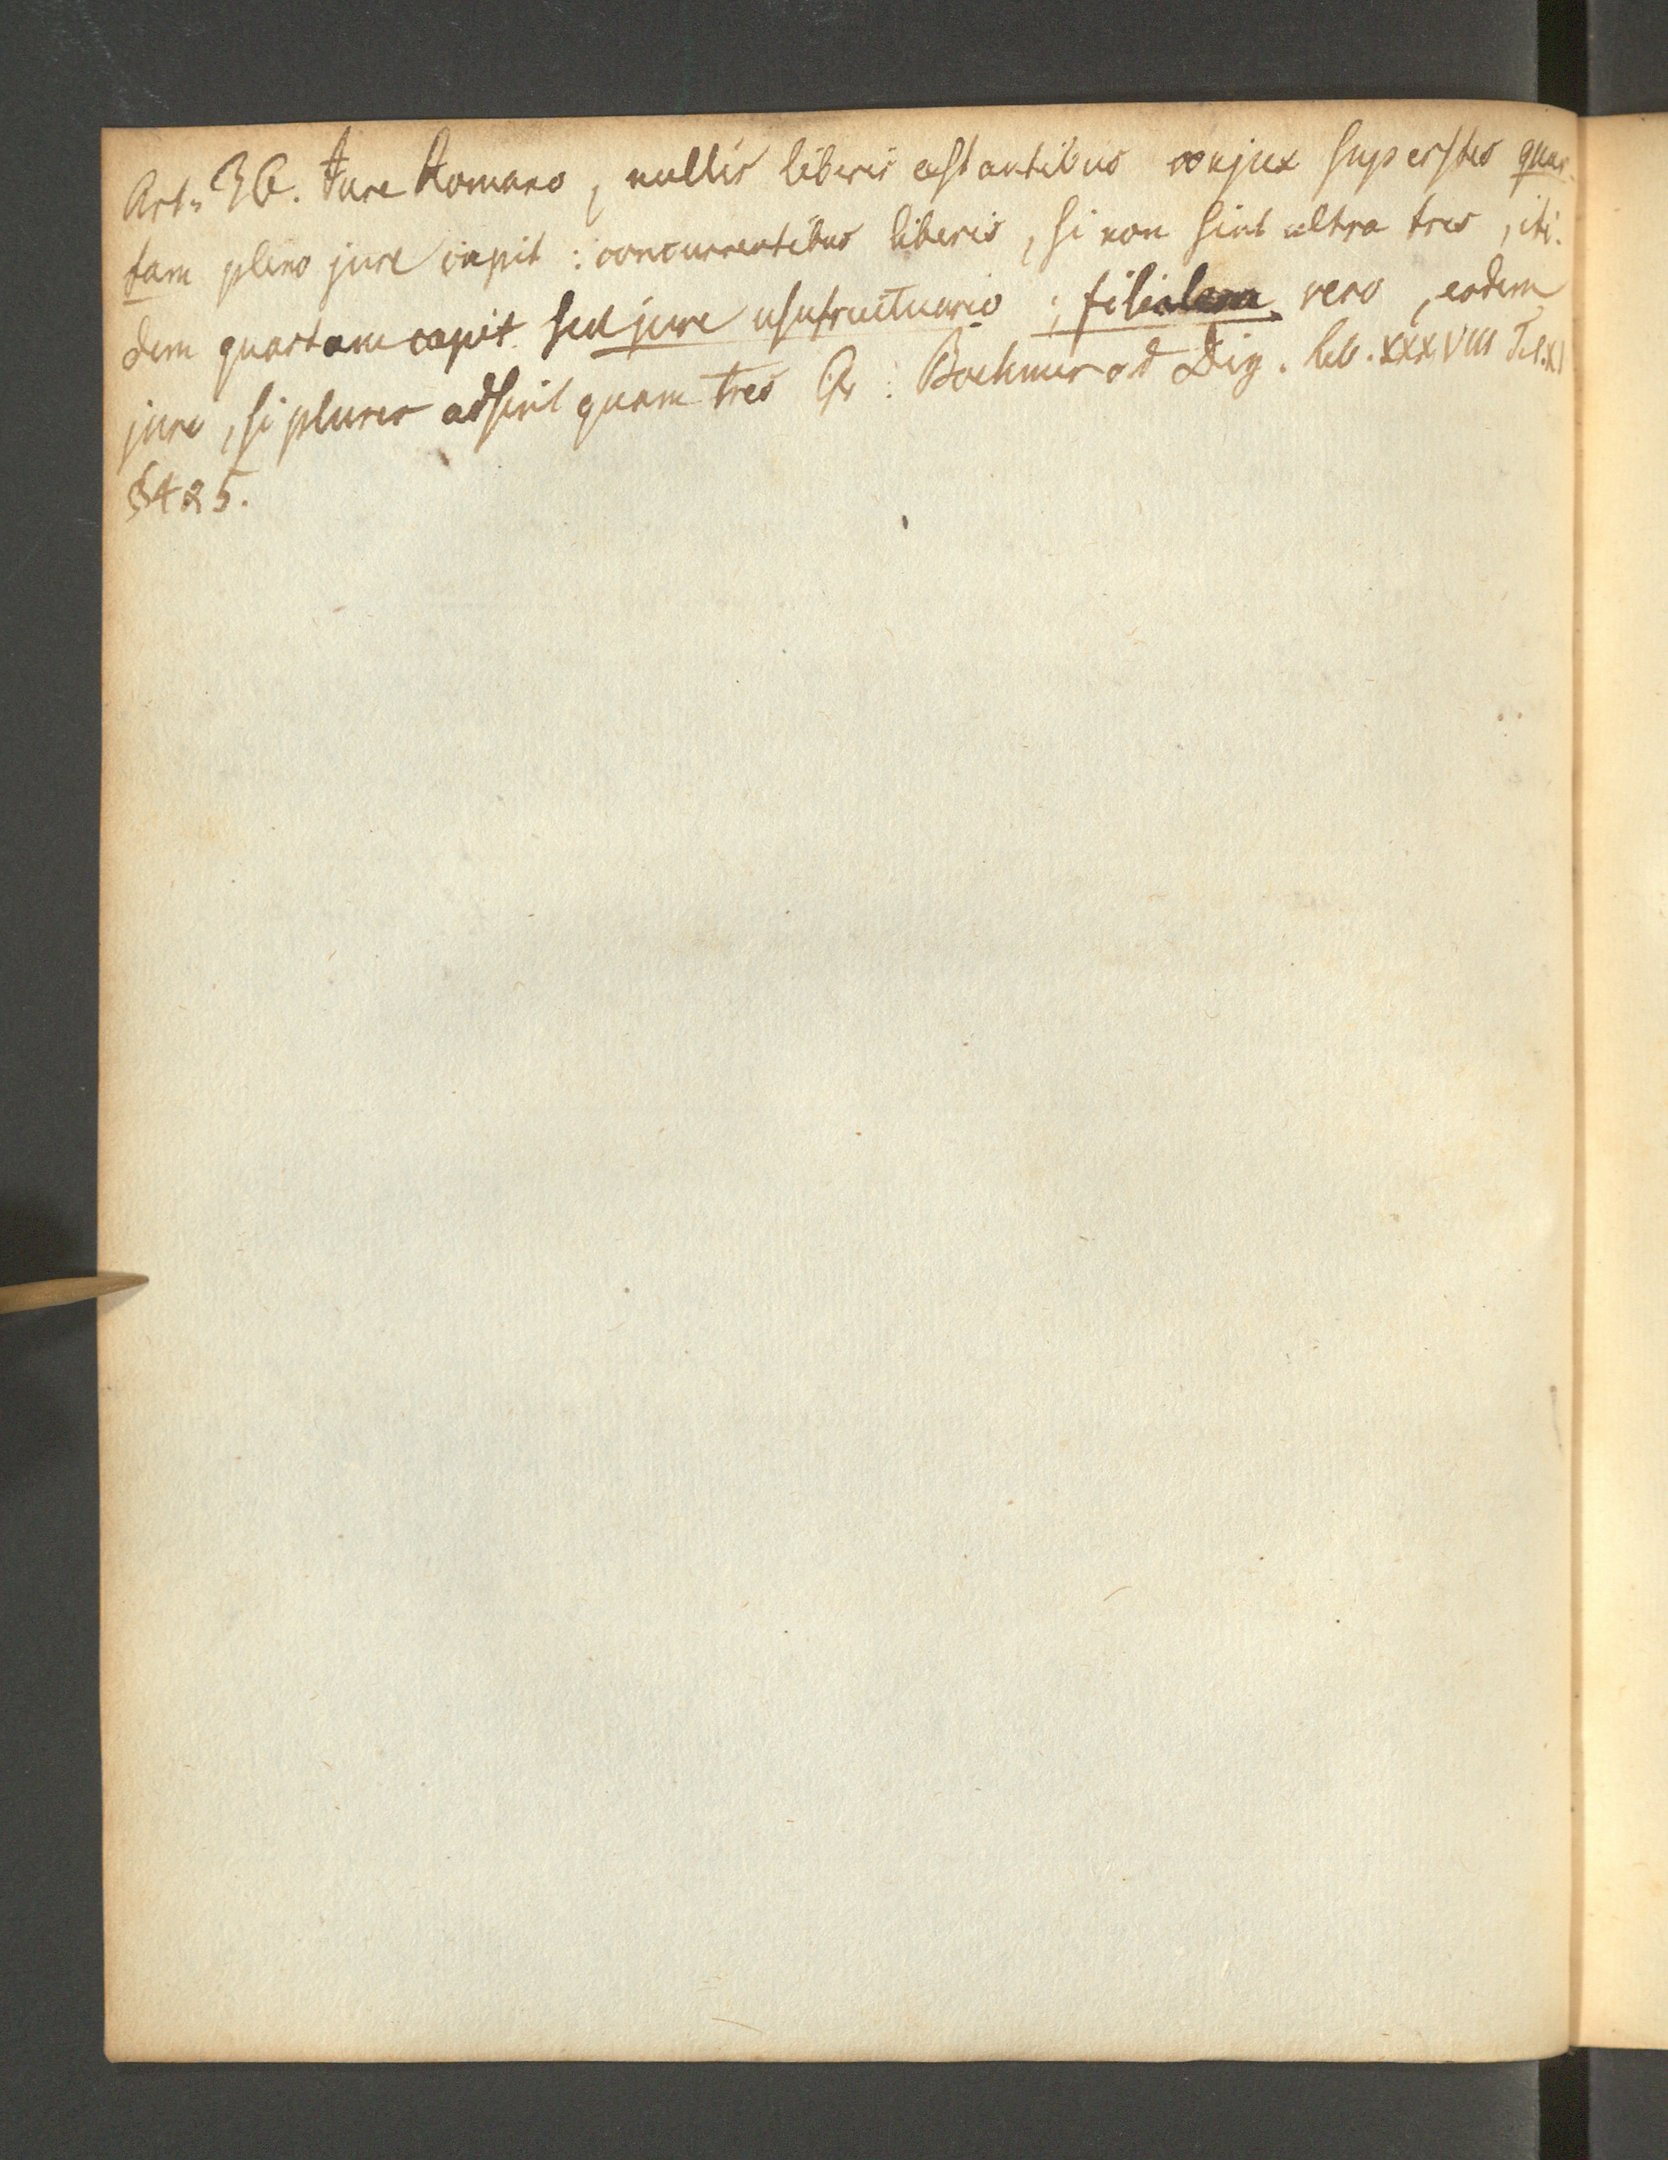 Art. 36. Jure Romano, nullis liberis extantibus conjux superstes quar-
tam pleno jure capit: concurrentibus liberis, si non sint ultra tres, iti-
dem quartam capit sed jure usufructuario; filialem vero, eodem
jure, si plures adsint quam tres Boehmer ad Dig. lib. XXXVIII Tit. XI
§425.